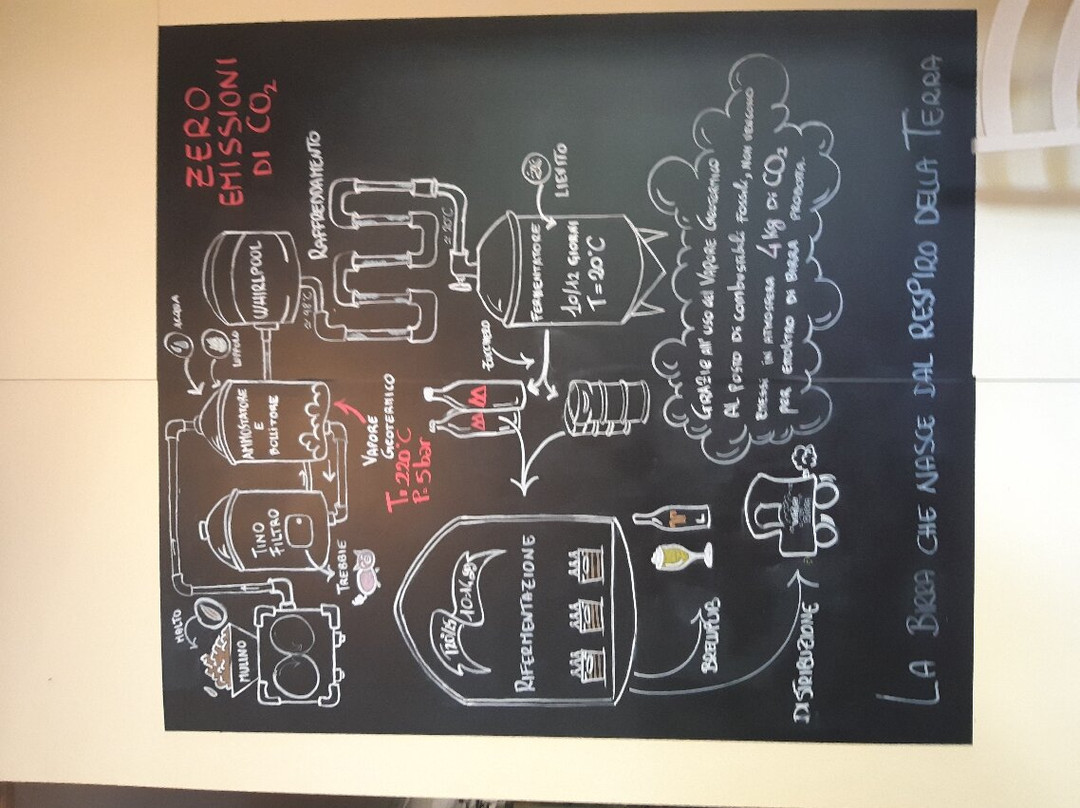 ZERO
EMISSIONI
DI CO₂
MALTO
MULINO
TINO
FILTRO
TREBBIE
AMMOSTATORE
E
BOLLITORE
ACQUA
LUPPOLO
WHIRLPOOL
VAPORE
GEOTERMICO
T= 220°C
P= 5 bar
98°C
RAFFREDDAMENTO
20°C
LIEVITO
FERMENTATORE
10/12 GIORNI
T=20°C
ZUCCHERO
RIFERMENTAZIONE
BREWPUB
DISTRIBUZIONE
GRAZIE all'USO del VAPORE GEOTERMICO
AL POSTO DI COMBUSTIBILI FOSSILI, NON VENGONO
EMESSI IN ATMOSFERA 4 kg DI CO₂
PER
DI BIRRA PRODOTTA.
LA BIRRA CHE NASCE DAL RESPIRO DELLA TERRA